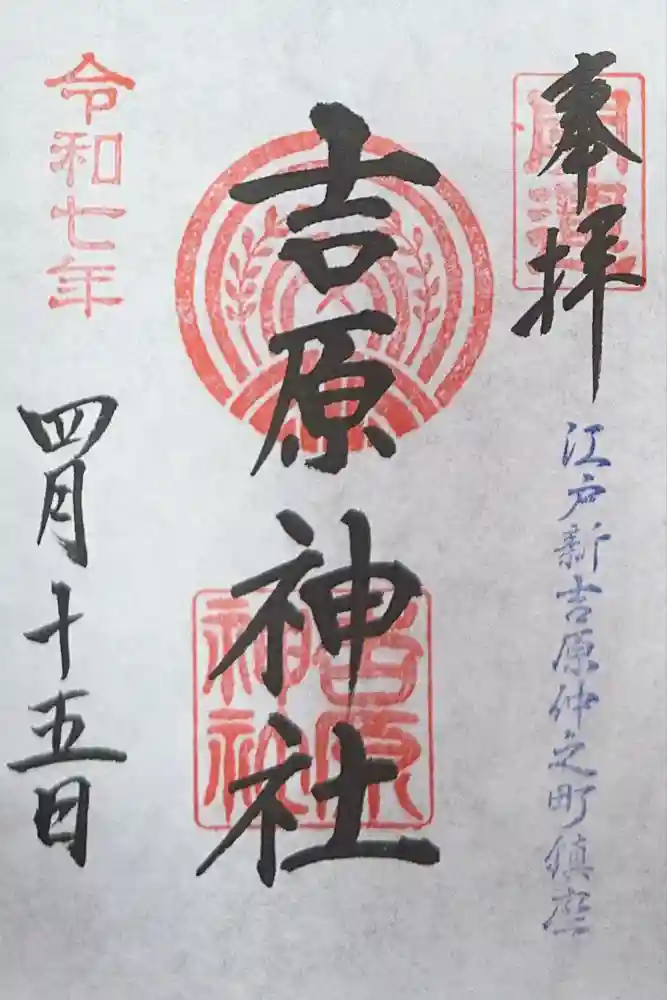 奉拝
開運
江戸新吉原仲之町鎮座
吉原神社
吉原
神社
令和七年
四月十五日